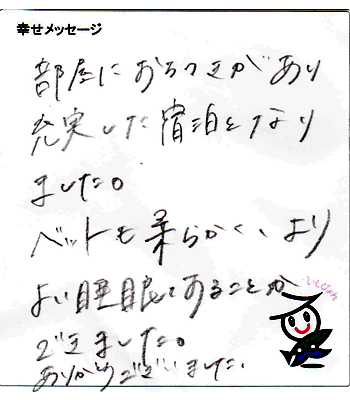 幸せメッセージ
部屋におろつきがあり
充実した宿泊となり
ました。
ベットも柔らかく、より
よい睡眠とあることが
できました。
ありがとうございました。